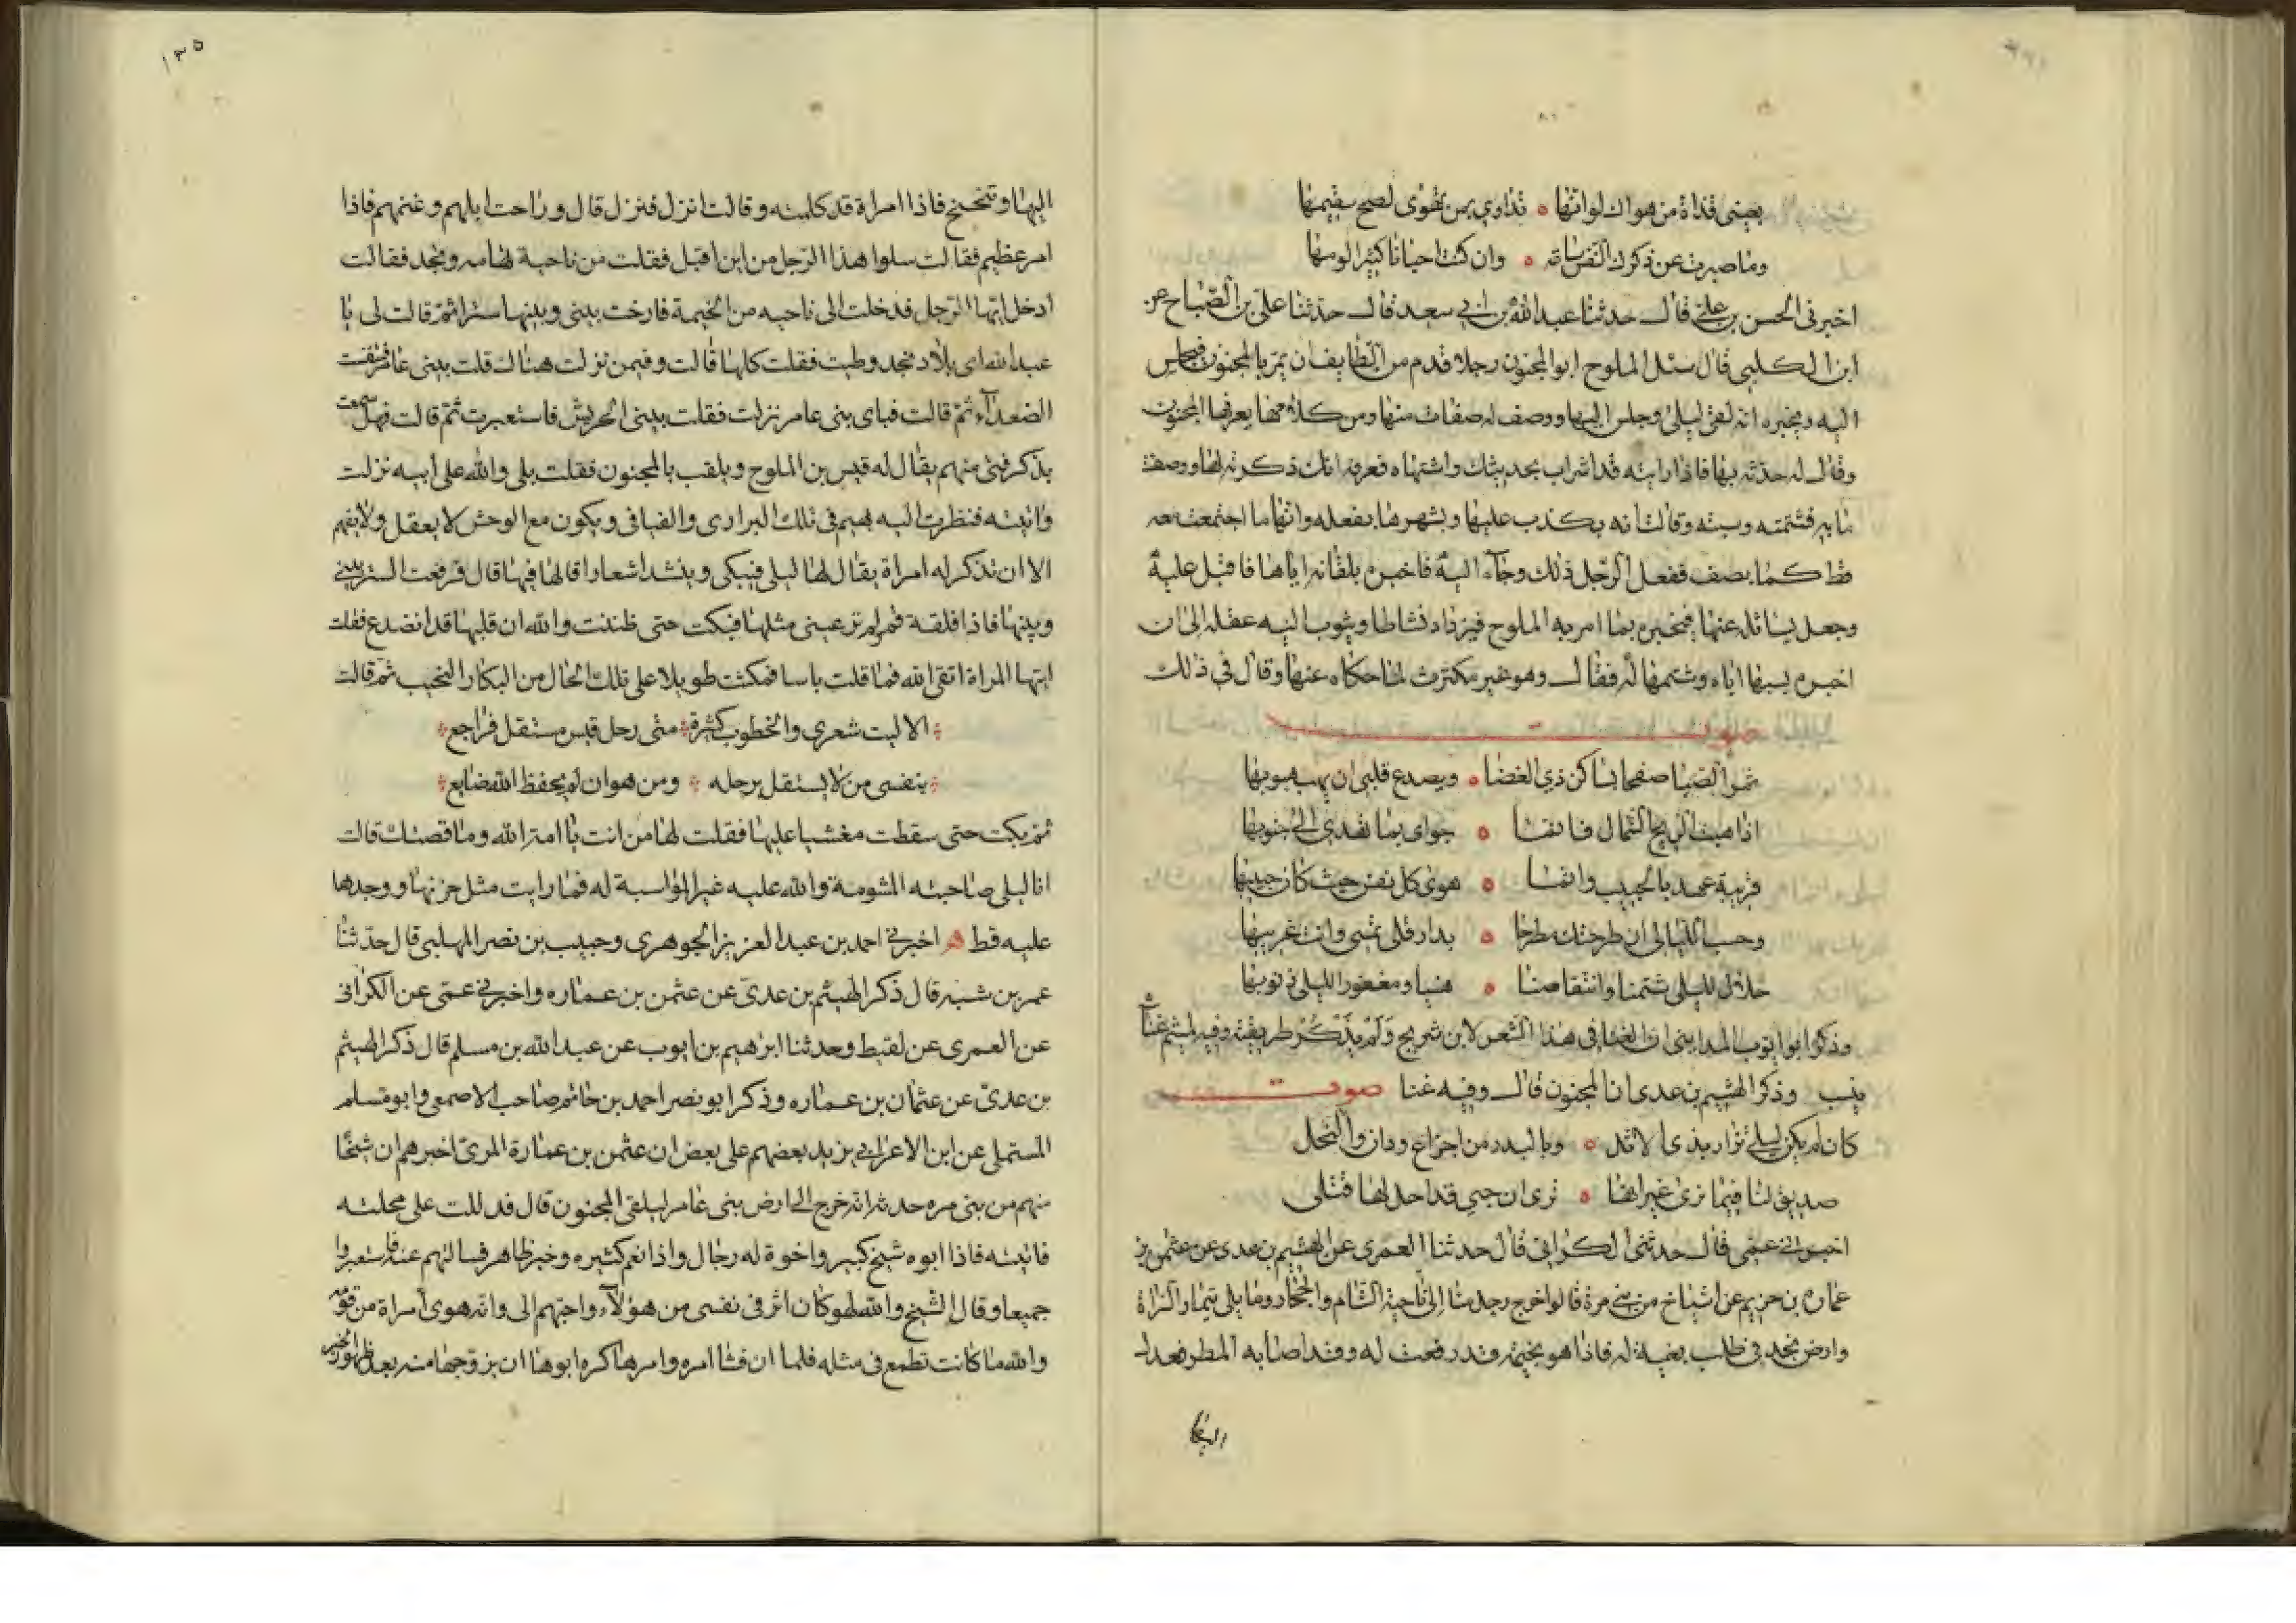 بعينى قذاة من هواك لوانها ه تداوى بمن تهوى لصح سقيمها
وما صبرت عن ذكرك النفس ساعة ه وان كنت احيانا كثيرا الومها
اخبرنى الحسن بن على قال حدثنا عبد الله بن ابى سعد قال حدثنا على بن الصباح عن
ابن الكلبى قال سئل الملوح ابو المجنون رجلا قدم من الطايف ان يمر بالمجنون فيجلس
اليه ويخبره انه لقى ليلى وجلس اليها ووصف له صفات منها ومن كلامها يعرفها المجنون
وقال له حدثه بها فاذا رايته قد اشراب بحديثك واشتهاه فعرفه انك ذكرته لها ووصفت
ما به فشتمته وسبته وقالت انه يكذب عليها ويشهرها بفعله وانها ما اجتمعت معه
قط كما يصف ففعل الرجل ذلك وجاء اليه فاخبره بلقائه اياها فاقبل عليه
وجعل يسائله عنها فيخبره بما امر به الملوح فيزداد نشاطا ويثوب اليه عقله الى ان
اخبره بسبها اياه وشتمها له فقال وهو غير مكترث لما حكاه عنها وقال فى ذلك
صوت
تمر الصبا صفحا بساكن ذى الغضا ه ويصدع قلبى ان يهب هبوبها
اذا هبت الريح الشمال فانما ه جواى بما تهدى الى جنوبها
قريبة عهد بالحبيب وانما ه هوى كل نفس حيث كان حبيبها
وحسب الليالى ان طرحنك مطرحا ه بدار قلى تمسى وانت غريبها
حلال لليلى شتمنا وانتقاصنا ه هنيا ومغفور لليلى ذنوبها
وذكر ابو ايوب المدينى ان الغنا فى هذا الشعر لابن سريج ولم يذكر طريقته وفيه لمتيم غنا
ينسب وذكر الهيثم بن عدى ان المجنون قال وفيه غنا صوت
كان لم يكن ليلى تزار بذى الاثل ه وبالسدر من اجزاع ودان والنخل
صديق لنا فيما نرى غير انها ه ترى ان حبى قد احل لها قتلى
اخبرنى عمى قال حدثنى الكرانى قال حدثنا العمرى عن الهيثم بن عدى عن عثمن بن
عماره بن حزيم عن اشياخ من بنى مرة قالوا خرج رجل منا الى ناحية الشام والحجاز وما يلى تيماء والسراة
وارض نجد فى طلب بغية له فاذا هو بخيمة قد رفعت له وقد اصابه المطر فعدل
اليها
١٣٥
اليها وتنحنح فاذا امراة قد كلمته وقالت انزل فنزل قال وراحت ابلهم وغنمهم فاذا
امر عظيم فقالت سلوا هذا الرجل من اين اقبل فقلت من ناحية تهامه ونجد فقالت
ادخل ايها الرجل فدخلت الى ناحيه من الخيمة فارخت بينى وبينها سترا ثم قالت لى يا
عبد الله اى بلاد نجد وطيت فقلت كلها قالت وفيمن نزلت هنالك قلت ببنى عامر فتنفست
الصعداء ثم قالت فباى بنى عامر نزلت فقلت ببنى الحريش فاستعبرت ثم قالت فهل سمعت
بذكر فتى منهم يقال له قيس بن الملوح ويلقب بالمجنون فقلت بلى والله على ابيه نزلت
واتيته فنظرت اليه يهيم فى تلك البرارى والفيافى ويكون مع الوحش لا يعقل ولا يفهم
الا ان تذكر له امراة يقال لها ليلى فيبكى وينشد اشعارا قالها فيها قال فرفعت الستر بينى
وبينها فاذا فلقة قمر لم تر عينى مثلها فبكت حتى ظننت والله ان قلبها قد انصدع فقلت
ايتها المراة اتقى الله فما قلت باسا فمكثت طويلا على تلك الحال من البكاء والنحيب ثم قالت
الا ليت شعرى والخطوب كثيرة متى رحل قيس مستقل فراجع
بنفسى من لا يستقل برحله ومن هو ان لم يحفظ الله ضايع
ثم بكت حتى سقطت مغشيا عليها فقلت لها من انت يا امة الله وما قصتك قالت
انا ليلى صاحبته المشومة والله عليه غير المواسية له فما رايت مثل حزنها ووجدها
عليه قط اخبرنى احمد بن عبد العزيز الجوهرى وحبيب بن نصر المهلبى قال حدثنا
عمر بن شبه قال ذكر الهيثم بن عدى عن عثمن بن عماره واخبرنى عمى عن الكرانى
عن العمرى عن لقيط وحدثنا ابرهيم بن ايوب عن عبد الله بن مسلم قال ذكر الهيثم
بن عدى عن عثمان بن عماره وذكر ابو نصر احمد بن حاتم صاحب الاصمعى وابو مسلم
المستملى عن ابن الاعرابى يزيد بعضهم على بعض ان عثمن بن عمارة المرى اخبرهم ان شيخا
منهم من بنى مره حدثه انه خرج الى ارض بنى عامر ليلقى المجنون قال فدللت على محلته
فاتيته فاذا ابوه شيخ كبير واخوة له رجال واذا نعم كثيره وخير ظاهر فسالتهم عنه فاستعبروا
جميعا وقال الشيخ والله لهو كان اثر فى نفسى من هؤلاء واحبهم الى وانه هوى امراة من قومه
والله ما كانت تطمع فى مثله فلما ان فشا امره وامرها كره ابوها ان يزوجها منه بعد ظهور الخبر